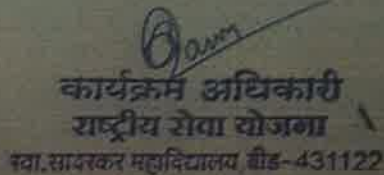 कार्यक्रम अधिकारी
राष्ट्रीय सेवा योजना
स्वा.सावरकर महाविद्यालय, बीड-431122